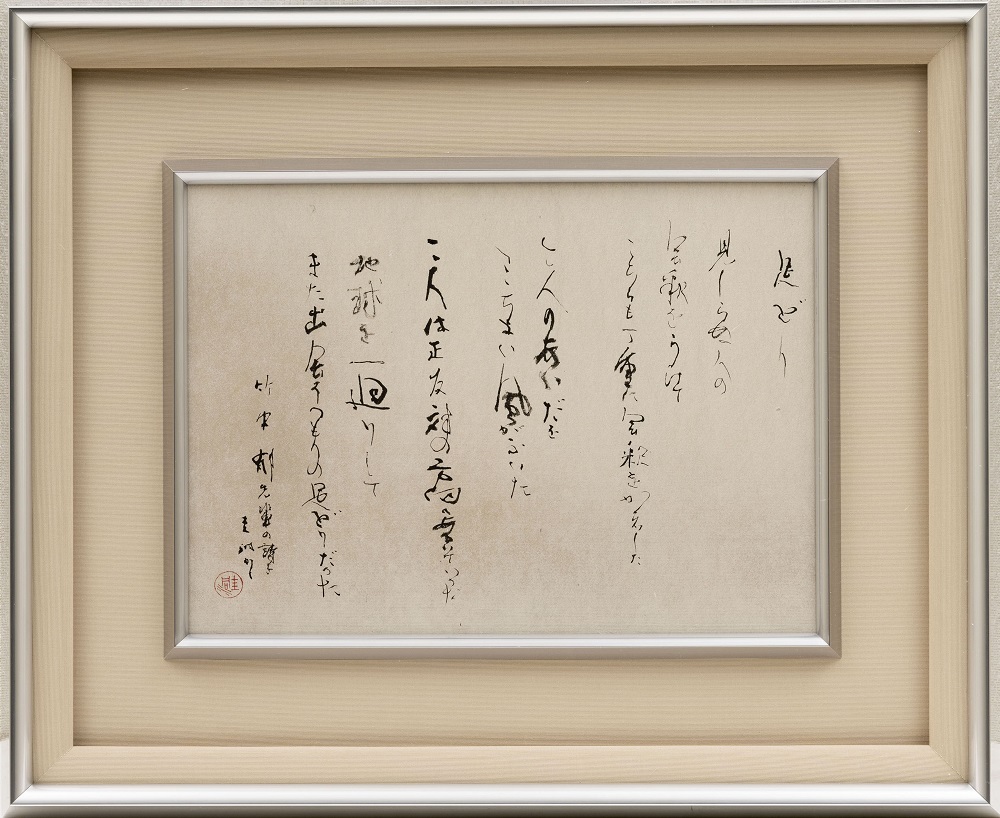 足どり
見しらぬ人の
会釈をうけ
こちらも丁重に会釈をかえした
二人のあいだを
ここちよい風がふいた
二人は正反対の方向へ歩いていった
地球を一廻りして
また出会うつもりの足どりだった
竹中郁先輩の詩を